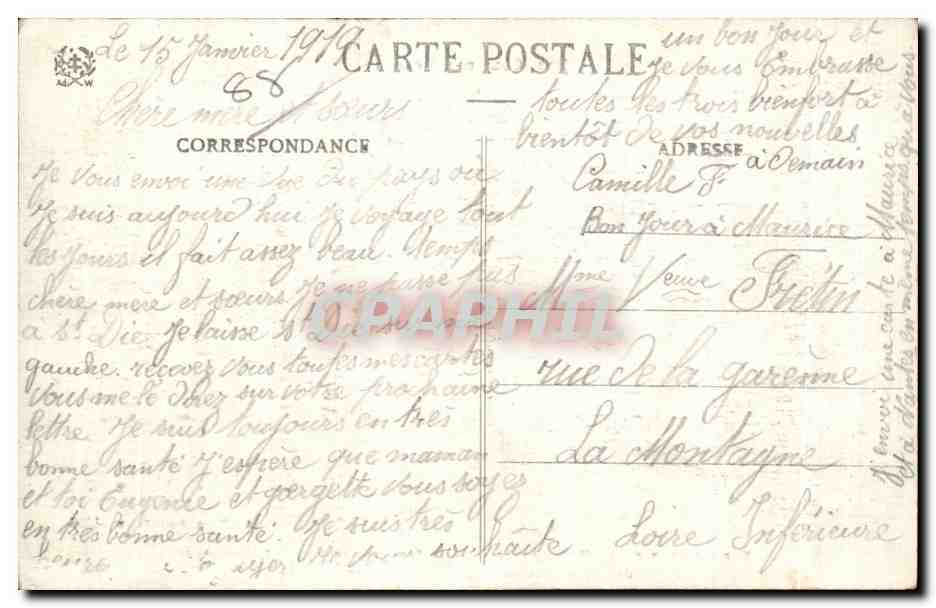 Le 15 Janvier 1919
88
CARTE POSTALE
Chère mère et Sœurs
CORRESPONDANCE
Je vous envoi une vue du pays où
Je suis aujourd hui Je voyage tout
les jours il fait assez beau temps
chère mère et sœurs Je ne passe plus
a St Die Je laisse St Die sur ma
gauche. recevez vous toutes mes cartes
vous me le direz sur votre prochaine
lettre. Je suis toujours en très
bonne santé J'espère que maman
et toi Eugenie et georgette vous soyez
en très bonne santé. Je suis très
souhaite
un bon jour et
Je vous Embrasse
toutes les trois bien fort à
bientôt de vos nouvelles
ADRESSE
à demain
Camille F
Bon Jour à Maurice
Mme Veuve Frétin
rue de la garenne
La Montagne
Loire Inférieure
J'envoi une carte à Maurice
et à d'autres en même temps qu'à vous
A W
CPAPHIL